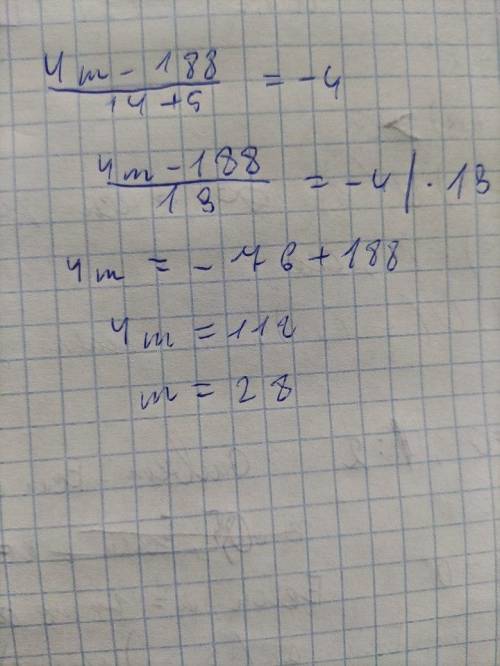 (4m - 188)/(14 + 5) = -4
(4m - 188)/19 = -4 | · 19
4m = - 76 + 188
4m = 112
m = 28